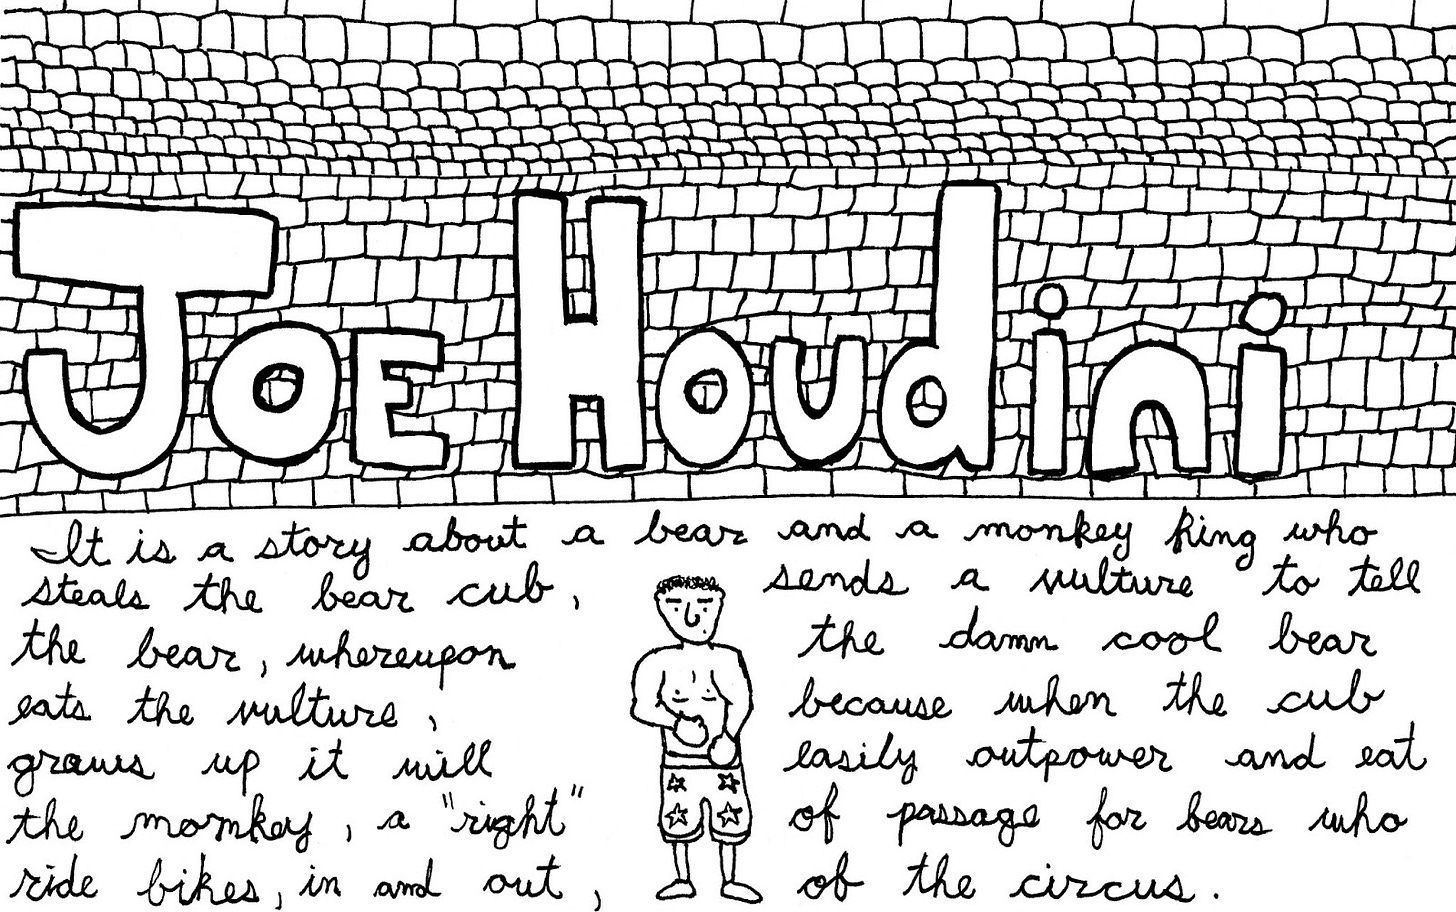 Joe Houdini
It is a story about a bear and a monkey king who
steals the bear cub, sends a vulture to tell
the bear, whereupon the damn cool bear
eats the vulture, because when the cub
grows up it will easily outpower and eat
the monkey, a "right" of passage for bears who
ride bikes, in and out, of the circus.